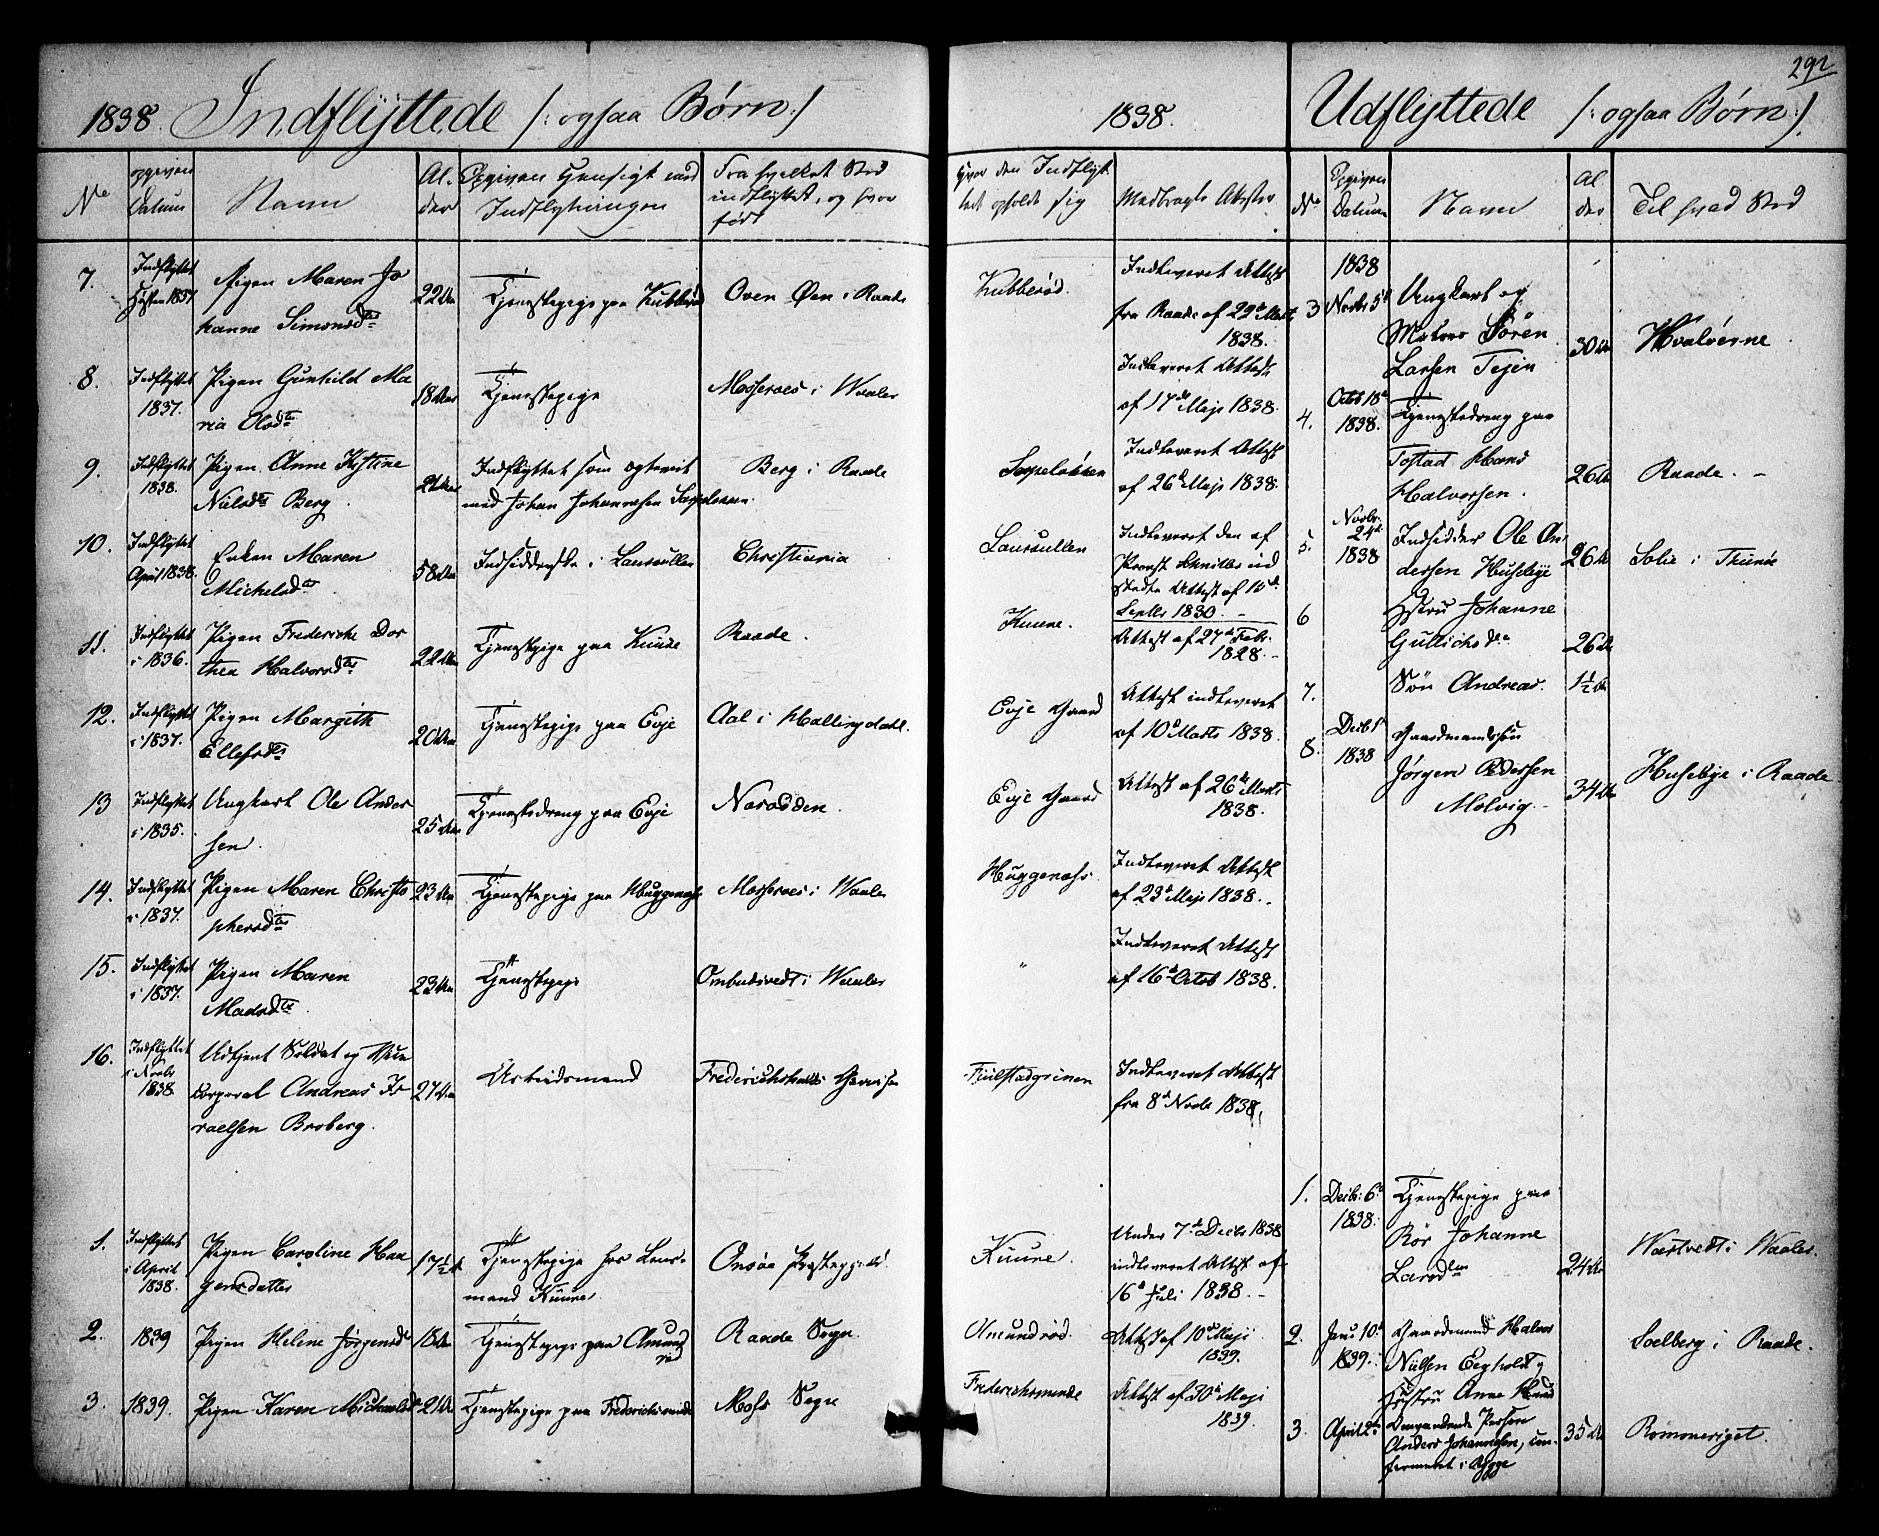 291
1838. Indflyttede /: ogsaa Børn :/
1838.
Udflyttede /: ogsaa Børn :/
No
opgiven Datum
Navn
Alder
Opgiven Hensigt med Indflytningen
Fra hvilket Sted indflyttet, og hvor født
Hvor den Indflyttet opholdt sig
Medbragte Attester
No
Opgiven Datum
Navn
Alder
Til hvad Sted
7. Indflyttet Høsten 1837 Pigen Maren Jo 22 Aar Tjenestepige paa Kubberød Oven Øen i Raade
hanne Simonsdtr
Kubberød. Indleveret Attest
fra Raade af 29de Marts
1838.
8. Indflyttet 1837. Pigen Gunhild Ma 18 Aar Tjenestepige Mosseroes i Waaler
ria Olsdtr
Indleveret Attest
af 17de Maji 1838.
9. Indflyttet 1838. Pigen Anne Kistine Indflyttet som egteviet Berg i Raade
Nielsdtr Berg med Johan Johannesen
Indleveret Attest
af 26de Maji 1838.
10. Indflyttet April 1838. Enken Maren 58 Aar Indsidderske i Laurkullen Christiania
Michelsdtr
Laurkullen Indleveret den af
Provst
Attest af 10de
Septbr 1830.
11. Indflyttet i 1836. Pigen Frederiche Dor 22 Aar Tjenestepige paa Kuure Raade.
thea Halvorsdtr
Kuure. Attest af 27de Febr.
1828.
12. Indflyttet i 1837. Pigen Margith 20 Aar Tjenestepige paa Evje Aal i Hallingdahl.
Ellefsdtr
Evje Gaard Attest indleveret
af 10de Marts 1838.
13 Indflyttet i 1835. Ungkarl Ole Ander 25 Aar Tjenestedreng paa Evje
sen.
Evje Gaard Attest af 26de Marts
1838.
14. Indflyttet i 1837. Pigen Maren Christo 23 Aar Tjenestepige paa Huggenæs Mosseroes i Waaler
phersdtr
Huggenæs. Indleveret Attest
af 23de Maji 1838.
15. Indflyttet i 1837. Pigen Maren 23 Aar Tjenestepige Ombudsvedt i Waaler
Madsdtr
" Indleveret Attest
af 16de Octob 1838.
16. Indflyttet i Novbr 1838. Udtjent Soldat og 27 Aar Arbeidsmand Frederichshalds Garnison
corporal Andreas Is
raelsen Broberg.
Indleveret Attest
fra 8de Novbr 1838.
1. Indflyttet i April 1838. Pigen Caroline Haa 17½ A Tjenestepige hos Lens- Onsøe Præstegjeld
gensdatter mand Kuure
Kuure. Under 7de Decbr 1838
indleveret Attest af
16de Juli 1838.
2. 1839 Pigen Helene Jørgensdr 18 Aar Tjenestepige paa Amund Raade Sogn.
rød
Amundrød. Attest af 10de Maji
1839.
3. 1839. Pigen Karen Michaelsdr 21 Aar Tjenestepige paa Frederichsminde Moss Sogn
Frederichsminde Attest af 30de Maji
1839.
3 1838 Novbr 5te Ungkarl og
Matros Sören 30 Aar Hvaløerne
Larsen Tejen
4. Octob 18de 1838. Tjenestedreng paa
Tofstad Hans 26 Aar Raade.
Halvorsen.
5. Novbr. 24de 1838 Indsidder Ole An
dersen Husebye 26 Aar Solie i Thunöe
6 Hustru Johanne
Gullichsdr 26 Aar
7. Søn Andreas. 1½ Aar
8. Decbr 1838 Gaardmandssøn
Jørgen Pedersen 34 Aar Husebye i Raade
Molvig.
1. Decbr: 6te 1838. Tjenestepige paa
Rör Johanne
Larsdtr 24 Aar Wæstvedt i Waaler.
2. Janu 10de 1839. Gaardmand Halvor Soelberg i Raade.
Nielsen Eegholdt og
Hustru Anne
3. April 2de Omvankende Person
Anders Johannesen, con- 35 Aar Rommeriget.
firmeret i Rygge